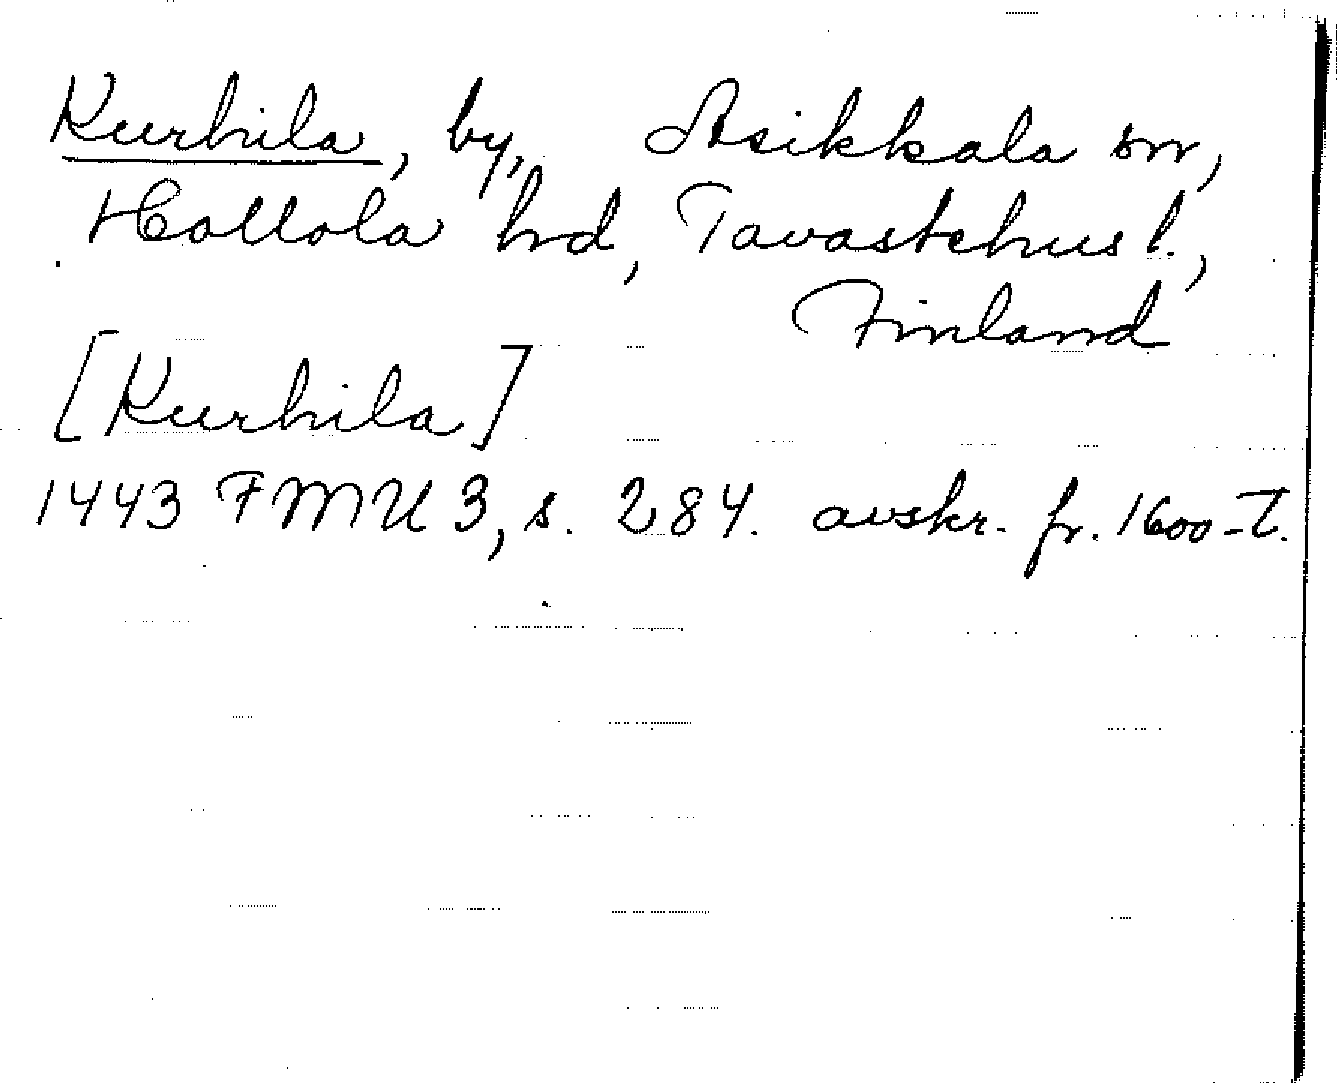 Kurhila, by, Asikkala sn,
Hollola hd, Tavastehus l.,
Finland
[Kurhila]
1443 FMU 3, s. 284. avskr. fr. 1600-t.